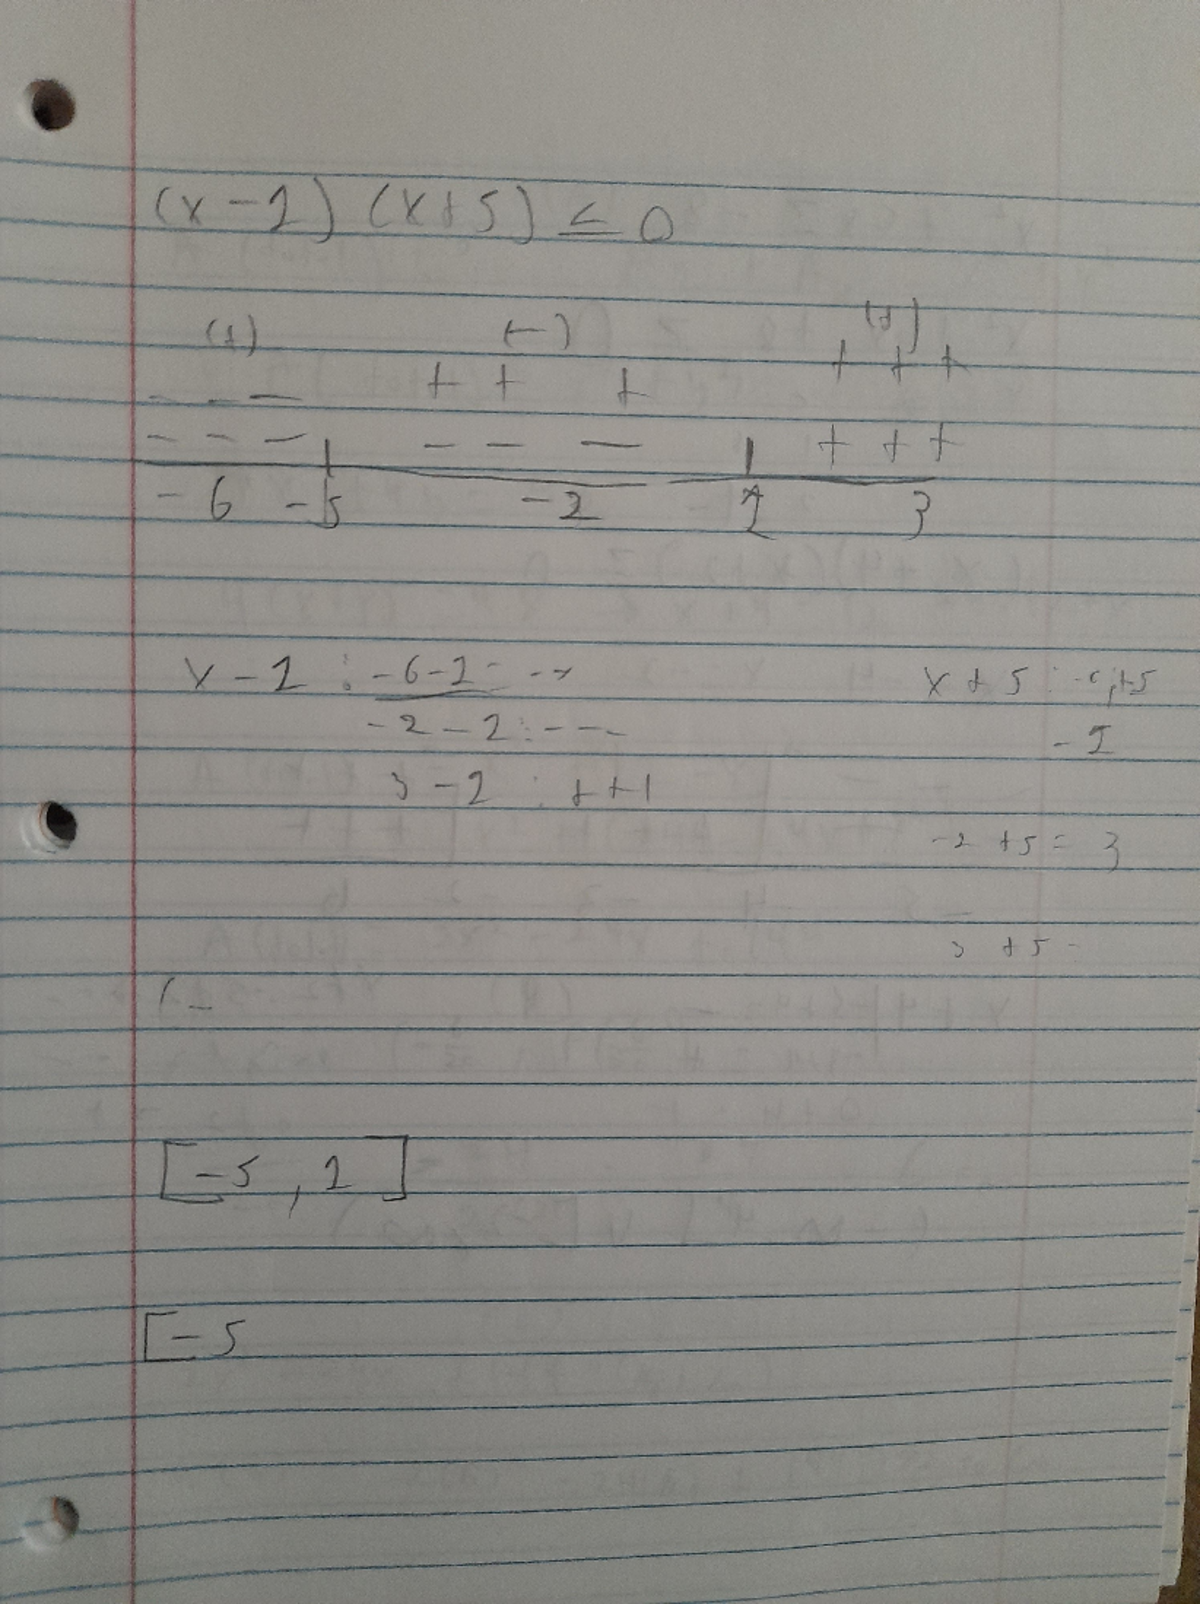 (x - 2) (x + 5) ≤ 0
(+) (-) (+)
- - - + + + + + +
- - - - - - + + +
-6 -5 -2 2 3
x - 2 : -6-2
x + 5 :
-2 - 2 : ---
3 - 2 : + +1
-2 + 5 = 3
3 + 5
( -
[-5 , 2 ]
[-5